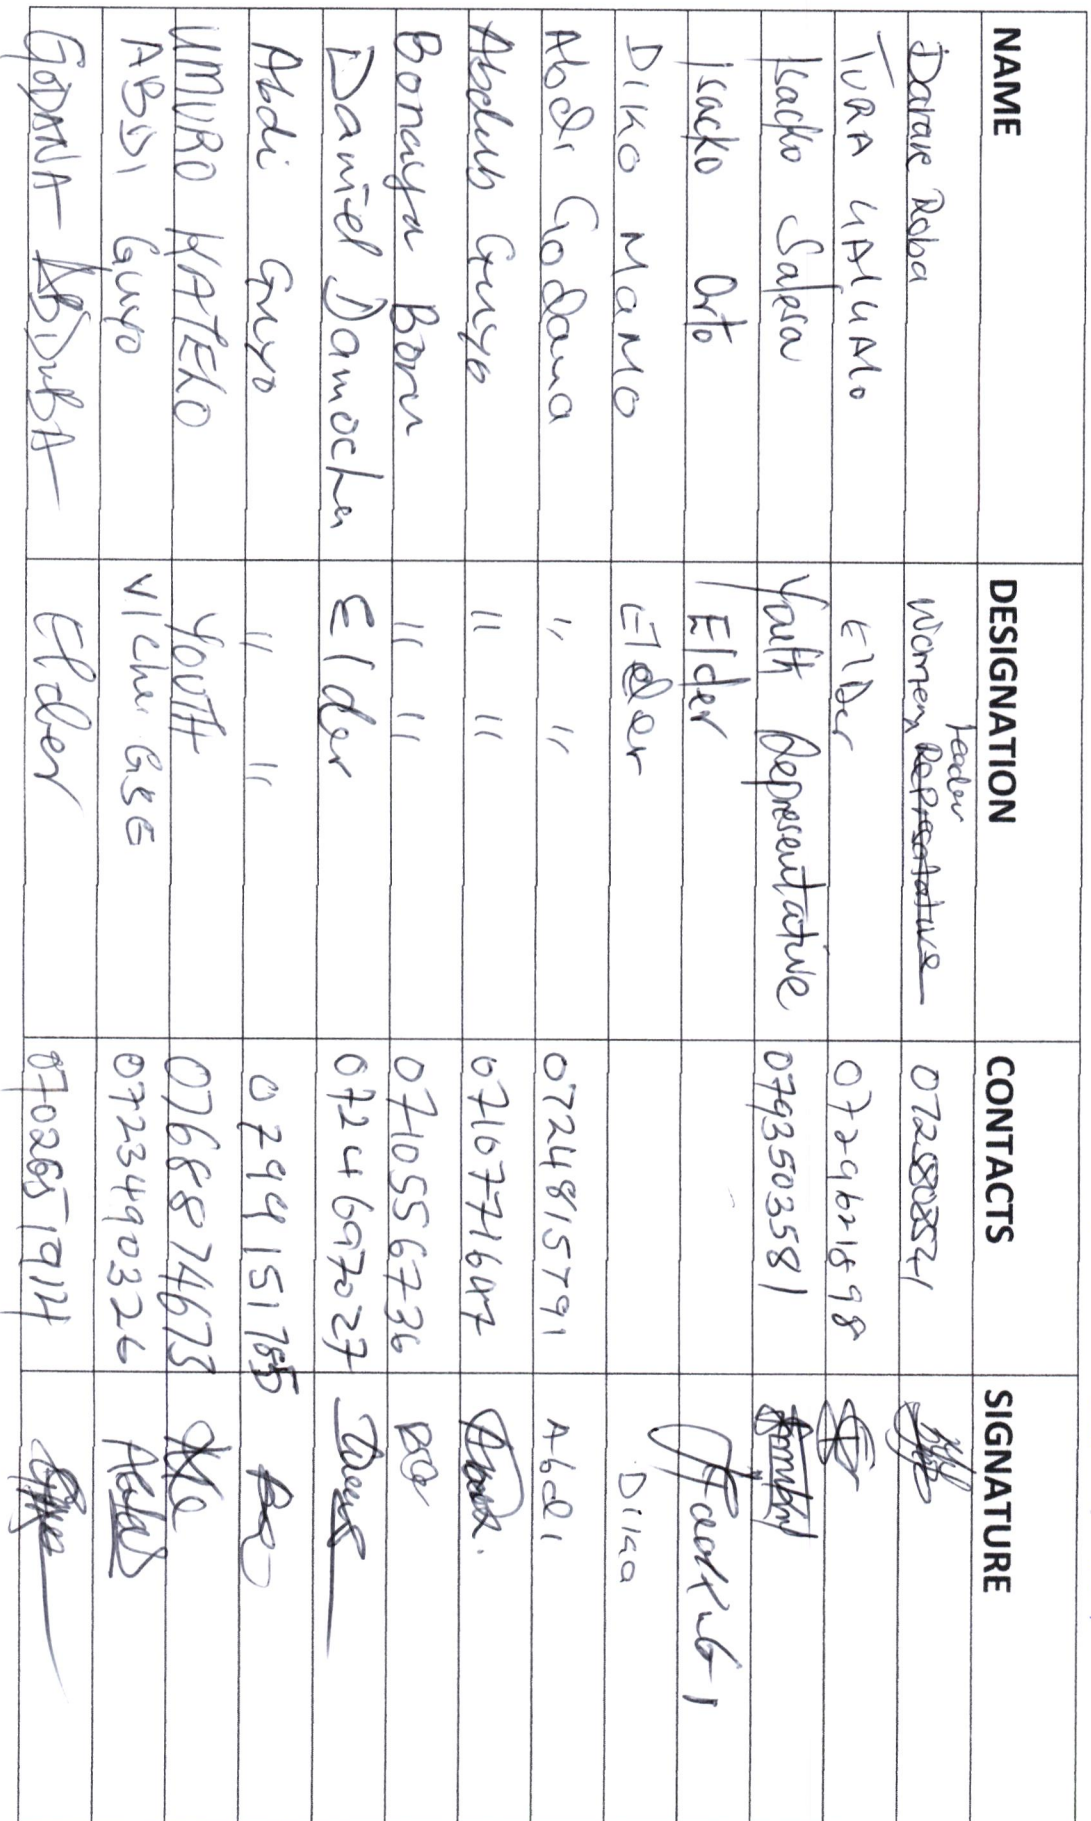 NAME DESIGNATION CONTACTS SIGNATURE
Darare Roba Women Leader Representative
TURA HALHALO ElDer 0729621898
Isacko Salesa Youth Representative 0793503581
Isacko Orto Elder
DIKO MAMO Elder Diko
Abdi Godana " " 0724815791 Abdi
Abdub Guyo " " 0710771647
Bonaya Boru " " 0710556736
Daniel Damocha Elder 0724697027
Abdi Guyo " "
UMURO KATELO YOUTH 0768874673
ABDI Guyo 0723490326
GODANA ABDUBA Elder